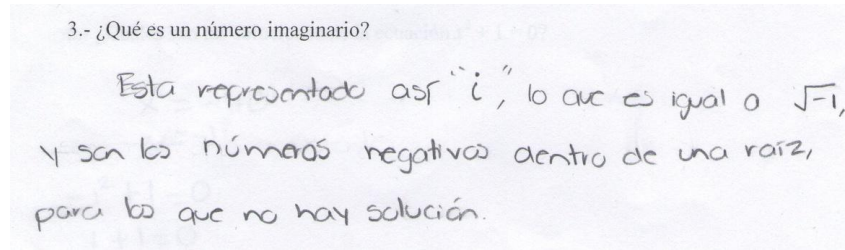 3.- ¿Qué es un número imaginario?
Esta representado así "i", lo que es igual a √-1,
y son los números negativos dentro de una raíz,
para los que no hay solución.